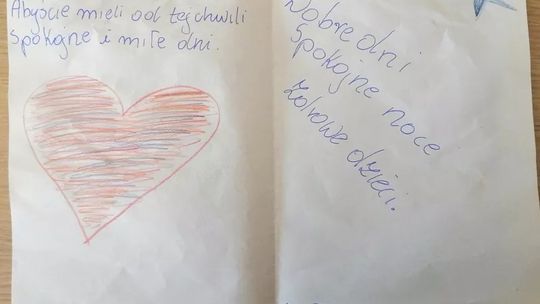 Abyście mieli od tej chwili
spokojne i miłe dni.
Dobre dni
Spokojne noce
Zdrowe dzieci.